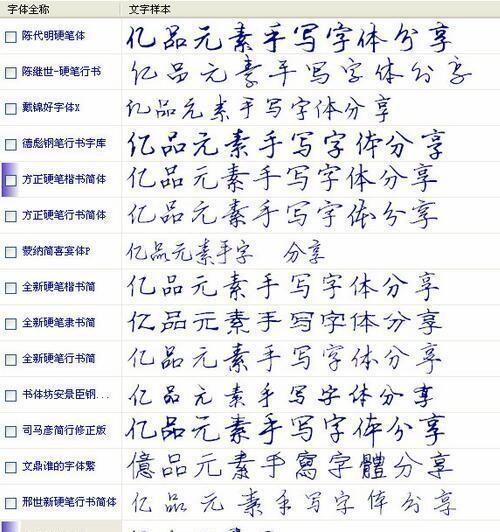 字体全称 文字样本
陈代明硬笔体 亿品元素手写字体分享
陈继世-硬笔行书 亿品元素手写字体分享
戴锦好字体X 亿品元素手写字体分享
德彪钢笔行书字库 亿品元素手写字体分享
方正硬笔楷书简体 亿品元素手写字体分享
方正硬笔行书简体 亿品元素手写字体分享
蒙纳简喜宾体P 亿品元素手字 分享
全新硬笔楷书简 亿品元素手写字体分享
全新硬笔隶书简 亿品元素手写字体分享
全新硬笔行书简 亿品元素手写字体分享
书体坊安景臣钢... 亿品元素手写字体分享
司马彦简行修正版 亿品元素手写字体分享
文鼎谁的字体繁 億品元素手寫字體分享
邢世新硬笔行书简体 亿品元素手写字体分享